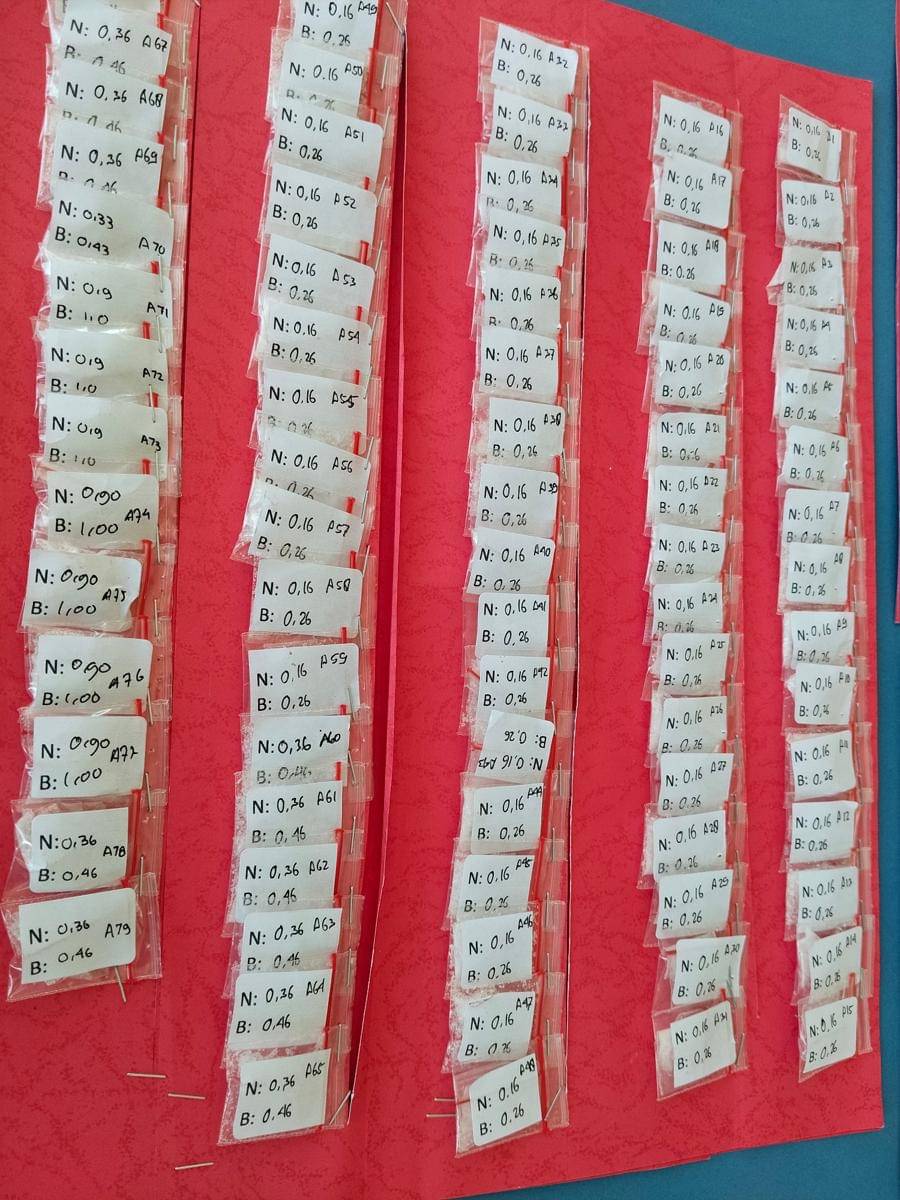 N: 0,36 A67
B: 0,46
N: 0,36 A68
B: 0,46
N: 0,36 A69
B: 0,46
N: 0,33
B: 0,43 A70
N: 0,9
B: 1,0 A71
N: 0,9
B: 1,0 A72
N: 0,9
B: 1,0 A73
N: 0,90
B: 1,00 A74
N: 0,90
B: 1,00 A75
N: 0,90
B: 1,00 A76
N: 0,90
B: 1,00 A77
N: 0,36
B: 0,46 A78
N: 0,36 A79
B: 0,46
N: 0,16 A49
B: 0,26
N: 0,16 A50
B: 0,26
N: 0,16 A51
B: 0,26
N: 0,16 A52
B: 0,26
N: 0,16 A53
B: 0,26
N: 0,16 A54
B: 0,26
N: 0,16 A55
B: 0,26
N: 0,16 A56
B: 0,26
N: 0,16 A57
B: 0,26
N: 0,16 A58
B: 0,26
N: 0,16 A59
B: 0,26
N: 0,36 A60
B: 0,46
N: 0,36 A61
B: 0,46
N: 0,36 A62
B: 0,46
N: 0,36 A63
B: 0,46
N: 0,36 A64
B: 0,46
N: 0,36 A65
B: 0,46
N: 0,16 A32
B: 0,26
N: 0,16 A33
B: 0,26
N: 0,16 A34
B: 0,26
N: 0,16 A35
B: 0,26
N: 0,16 A36
B: 0,26
N: 0,16 A37
B: 0,26
N: 0,16 A38
B: 0,26
N: 0,16 A39
B: 0,26
N: 0,16 A40
B: 0,26
N: 0,16 A41
B: 0,26
N: 0,16 A42
B: 0,26
N: 0,16 A43
B: 0,26
N: 0,16 A44
B: 0,26
N: 0,16 A45
B: 0,26
N: 0,16 A46
B: 0,26
N: 0,16 A47
B: 0,26
N: 0,16 A48
B: 0,26
N: 0,16 A16
B: 0,26
N: 0,16 A17
B: 0,26
N: 0,16 A18
B: 0,26
N: 0,16 A19
B: 0,26
N: 0,16 A20
B: 0,26
N: 0,16 A21
B: 0,26
N: 0,16 A22
B: 0,26
N: 0,16 A23
B: 0,26
N: 0,16 A24
B: 0,26
N: 0,16 A25
B: 0,26
N: 0,16 A26
B: 0,26
N: 0,16 A27
B: 0,26
N: 0,16 A28
B: 0,26
N: 0,16 A29
B: 0,26
N: 0,16 A30
B: 0,26
N: 0,16 A31
B: 0,26
N: 0,16 A1
B: 0,26
N: 0,16 A2
B: 0,26
N: 0,16 A3
B: 0,26
N: 0,16 A4
B: 0,26
N: 0,16 A5
B: 0,26
N: 0,16 A6
B: 0,26
N: 0,16 A7
B: 0,26
N: 0,16 A8
B: 0,26
N: 0,16 A9
B: 0,26
N: 0,16 A10
B: 0,26
N: 0,16 A11
B: 0,26
N: 0,16 A12
B: 0,26
N: 0,16 A13
B: 0,26
N: 0,16 A14
B: 0,26
N: 0,16 A15
B: 0,26